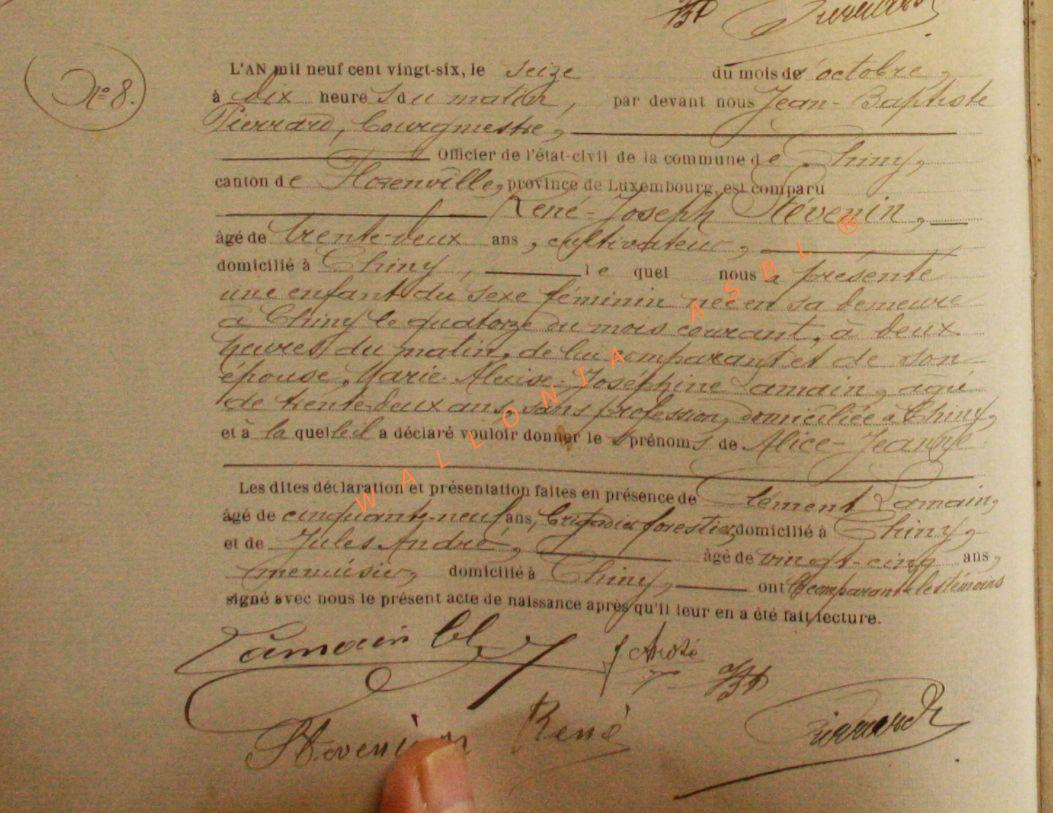 JBP Pierrard
N° 8.
L'AN mil neuf cent vingt-six, le seize du mois de octobre,
à dix heures du matin, par devant nous Jean-Baptiste
Pierrard, bourgmestre,
Officier de l'état-civil de la commune de Chiny,
canton de Florenville, province de Luxembourg, est comparu
René-Joseph Stévenin,
âgé de trente-deux ans, cultivateur,
domicilié à Chiny, lequel nous a présenté
une enfant du sexe féminin née en sa demeure
à Chiny le quatorze du mois courant, à deux
heures du matin, de lui comparant et de son
épouse, Marie-Aloïse-Joséphine Lamain, agée
de trente-deux ans, sans profession, domiciliée à Chiny,
et à laquelle il a déclaré vouloir donner les prénoms de Alice-Jeanne
Les dites déclaration et présentation faites en présence de Clément Lamain,
âgé de cinquante-neuf ans, brigadier forestier, domicilié à Chiny,
et de Jules André, âgé de vingt-cinq ans,
menuisier, domicilié à Chiny, ont le comparant et les témoins
signé avec nous le présent acte de naissance après qu'il leur en a été fait lecture.
Lamain Cl J André
JBP
Stévenin René Pierrard
WALLONIA ASBL ®